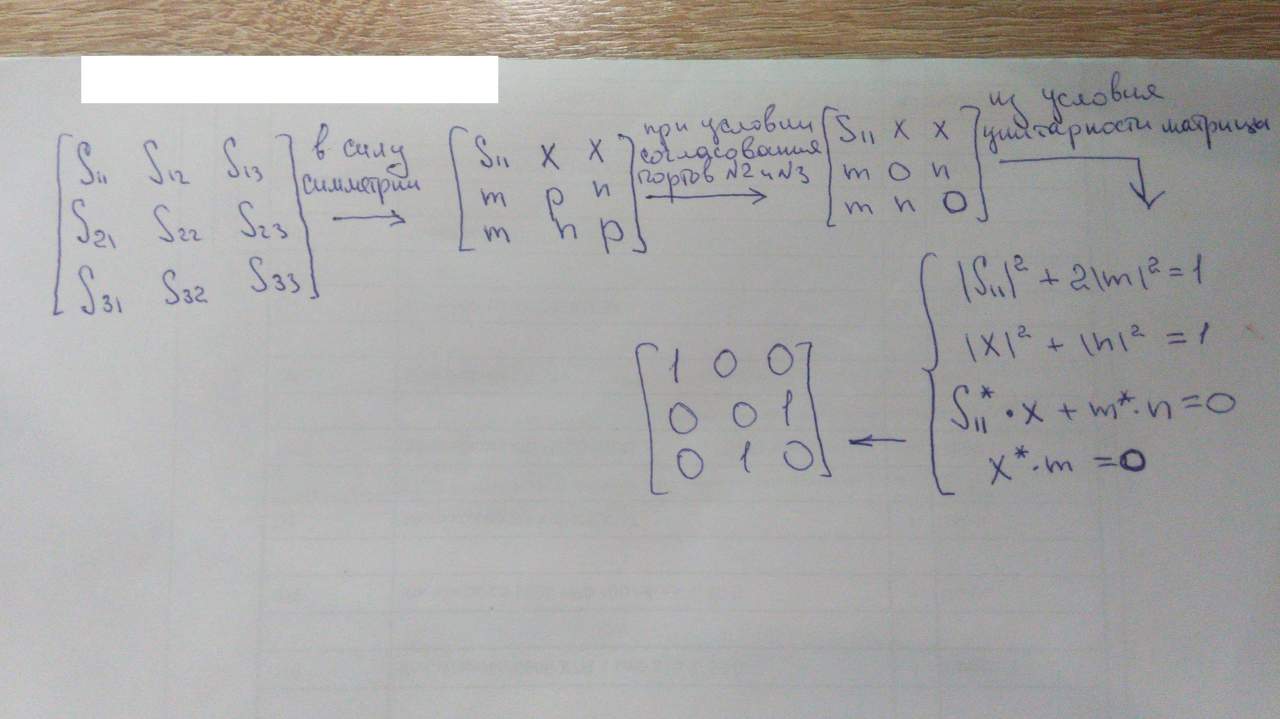 [S₁₁ S₁₂ S₁₃]
[S₂₁ S₂₂ S₂₃]
[S₃₁ S₃₂ S₃₃]
в силу
симметрии
→
[S₁₁ x x]
[m p n]
[m n p]
при условии
согласования
портов №2 и №3
→
[S₁₁ x x]
[m 0 n]
[m n 0]
из условия
унитарности матрицы
|S₁₁|² + 2|m|² = 1
|x|² + |n|² = 1
S₁₁* · x + m* · n = 0
x* · m = 0
←
[1 0 0]
[0 0 1]
[0 1 0]